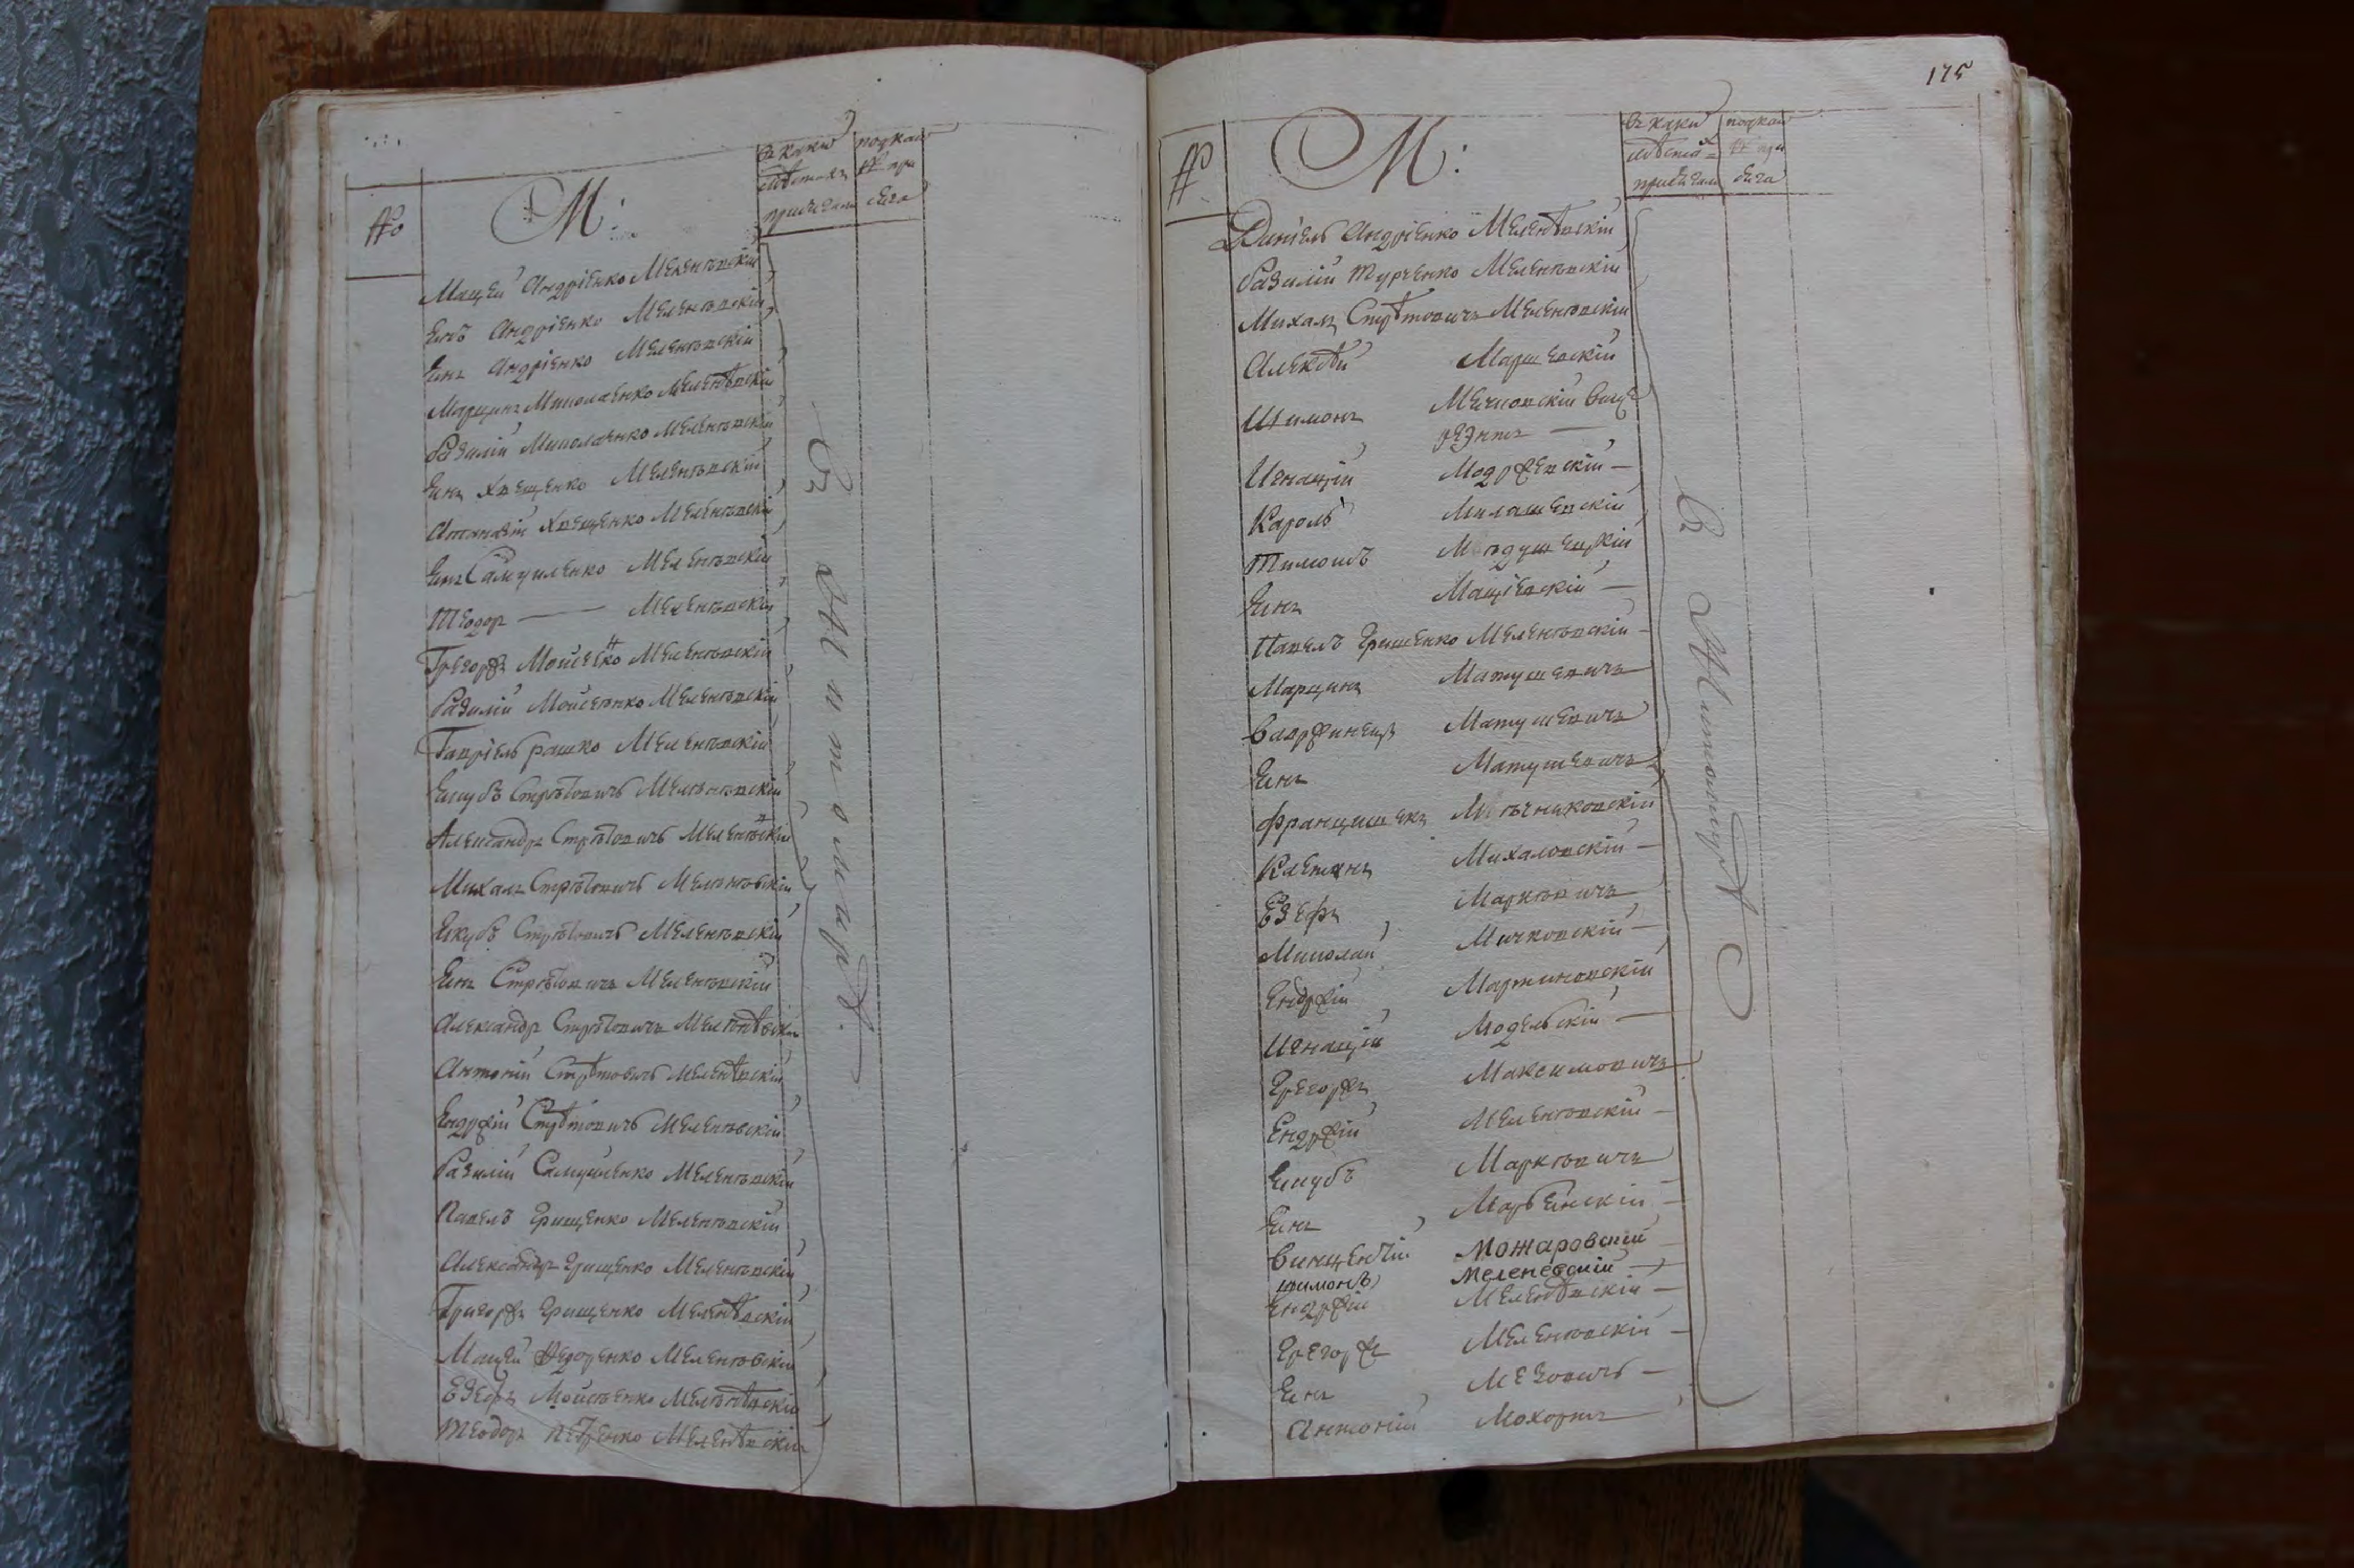 №
М:
въ какихъ
мѣстахъ
присягали
подкак
№ при
сяга
Мацѣй Андріенко Меленѣвскій
Якъ Андріенко Меленѣвскій
Янъ Андріенко Меленѣвскій
Марцинъ Миколаенко Меленѣвскій
Базилій Миколаенко Меленѣвскій
Янъ Хвещенко Меленѣвскій
Атаназій Хвещенко Меленѣвскій
Янъ Самуиленко Меленѣвскій
Теодор — Меленѣвскій
Грегоржъ Мойсеенко Меленѣвскій
Базилій Мойсеенко Меленѣвскій
Гавріель рашко Меленѣвскій
Якубъ Стрѣтовичъ Меленѣвскій
Александръ Стрѣтовичъ Меленѣвскій
Михалъ Стрѣтовичъ Меленѣвскій
Якубъ Стрѣтовичъ Меленѣвскій
Янъ Стрѣтовичъ Меленѣвскій
Александръ Стрѣтовичъ Меленѣвскій
Антоній Стрѣтовичъ Меленѣвскій
Ендржій Стрѣтовичъ Меленѣвскій
Базилій Самуиленко Меленѣвскій
Павелъ Грищенко Меленѣвскій
Александръ Грищенко Меленѣвскій
Григоржъ Грищенко Меленѣвскій
Мацѣй Федоренко Меленѣвскій
Езефъ Мойсѣенко Меленѣвскій
Теодоръ Петренко Меленѣвскій
въ Житомирѣ.
175
№
М:
въ какихъ
мѣстахъ
присягали
подкак
№ при
сяга
Даніель Андріенко Меленѣвскій
Базилій Турченко Меленѣвскій
Михалъ Стрѣтовичъ Меленѣвскій
Алексѣй Маршевскій
Шимонъ Мечиовскій вице
регэнтъ —
Игнацій Модржевскій —
Кароль Милашевскій
Тимоѳъ Мѣдушецкій
Янъ Мацѣевскій —
Павелъ Гришенко Меленѣвскій —
Марцинъ Матушевичъ
Вавржинецъ Матушевичъ
Янъ Матушевичъ
Францишекъ Мѣчниковскій
Каетанъ Михаловскій —
Езефъ Маркѣвичъ
Миколай Мичковскій —
Ендржій Мартиновскій
Игнацій Модельскій —
Грегоржъ Максимовичъ
Ендржій Меленѣвскій —
Якубъ Маркѣвичъ
Янъ Марѣинскій —
Винценчій Можаровскій
шимонъ Меленевскій
Ендржій Меленѣвскій —
Грегоржъ Меленѣвскій —
Янъ Мезовичъ —
Антоній Мохортъ
въ Житомирѣ